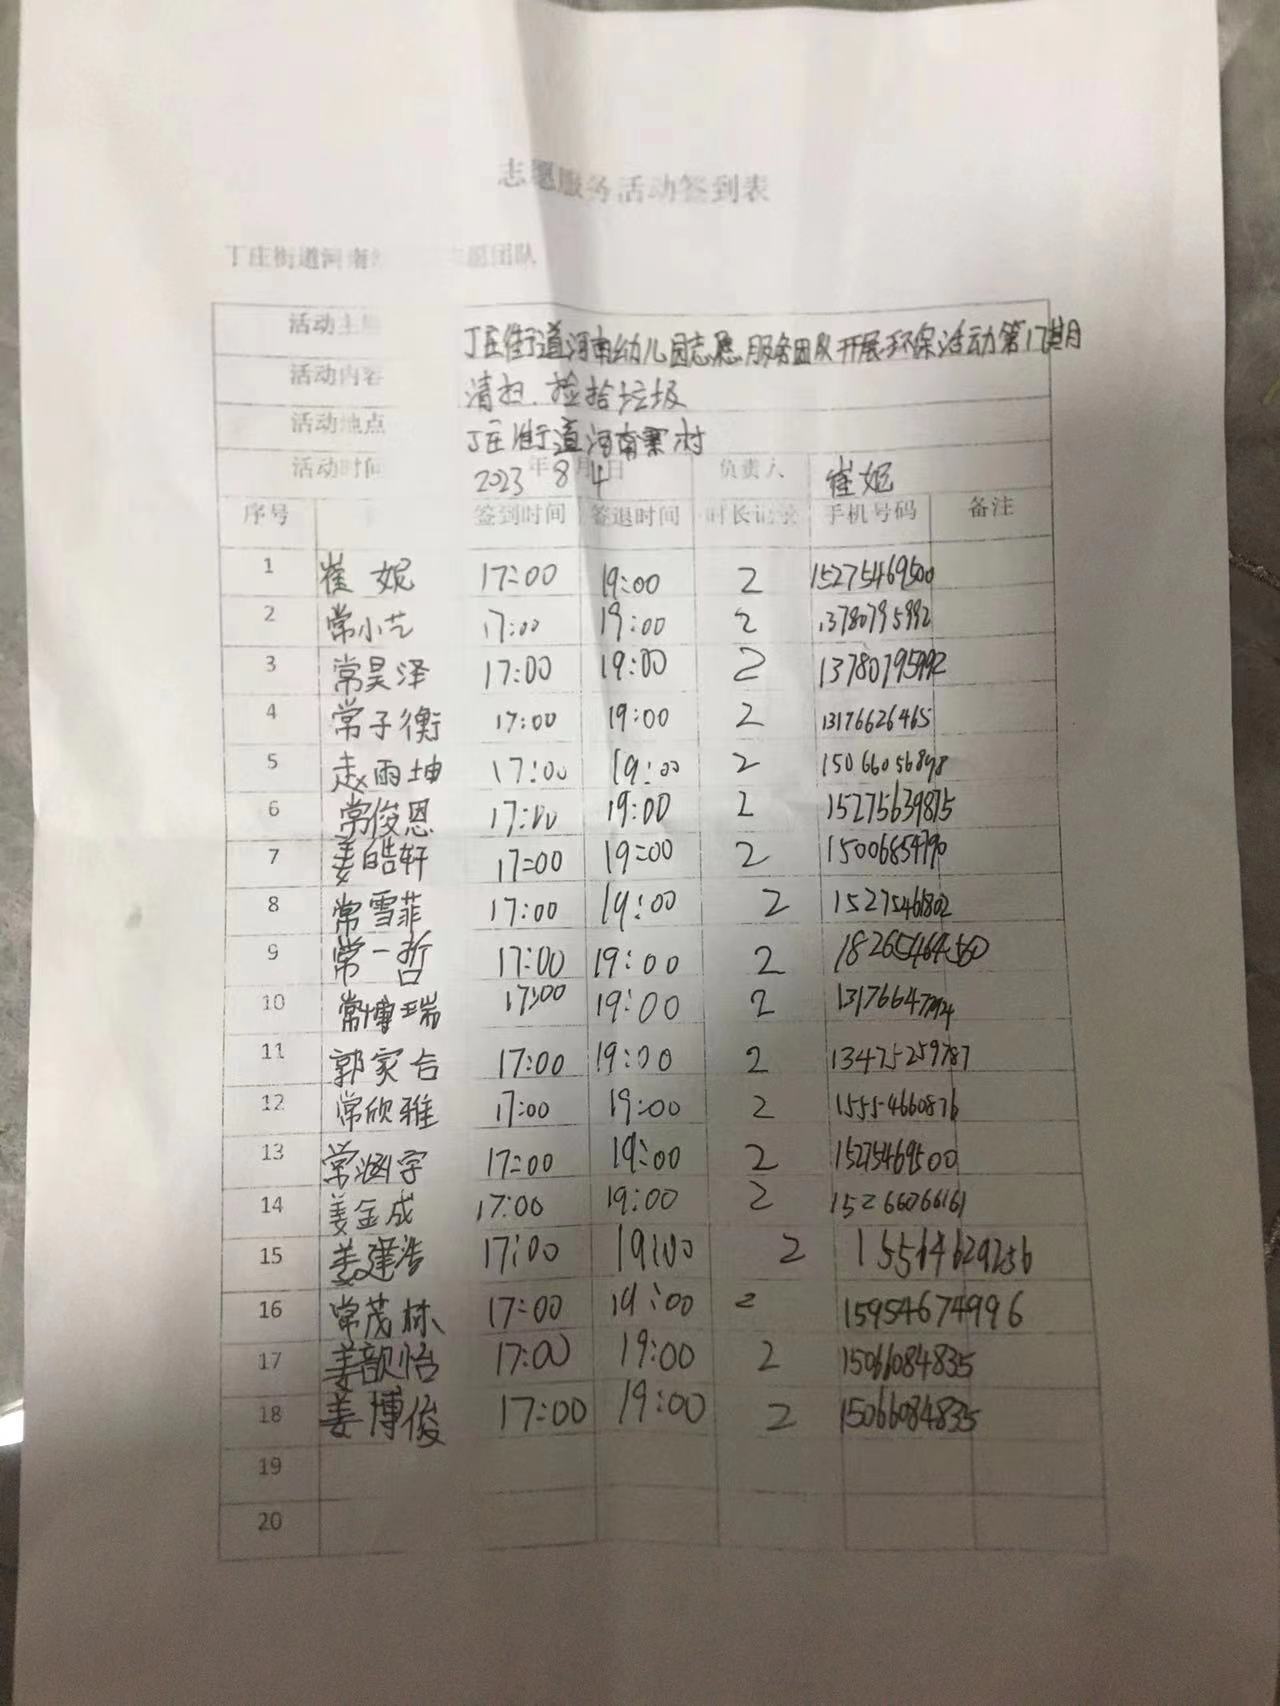 志愿服务活动签到表
丁庄街道河南 志愿团队
活动主题 丁庄街道河南幼儿园志愿服务团队开展环保活动第17期
活动内容 清扫、捡拾垃圾
活动地点 丁庄街道河南寨村
活动时间 2023年8月4日 负责人 崔妮
序号 签到时间 签退时间 时长记录 手机号码 备注
1 崔妮 17:00 19:00 2 15275469500
2 常小艺 17:00 19:00 2 13780795992
3 常昊泽 17:00 19:00 2 13780795992
4 常子衡 17:00 19:00 2 13176626465
5 赵雨坤 17:00 19:00 2 15066056898
6 常俊恩 17:00 19:00 2 15275639875
7 姜皓轩 17:00 19:00 2 15006854790
8 常雪菲 17:00 19:00 2 15275461802
9 常一哲 17:00 19:00 2 18265464560
10 常博瑞 17:00 19:00 2
11 郭家合 17:00 19:00 2 13475259787
12 常欣雅 17:00 19:00 2 15554660876
13 常涵宇 17:00 19:00 2 15275469500
14 姜金成 17:00 19:00 2 15266066161
15 姜建浩 17:00 19:00 2 15564629256
16 常茂林 17:00 19:00 2 15954674996
17 姜歆怡 17:00 19:00 2 15066084835
18 姜博俊 17:00 19:00 2 15066084835
19
20